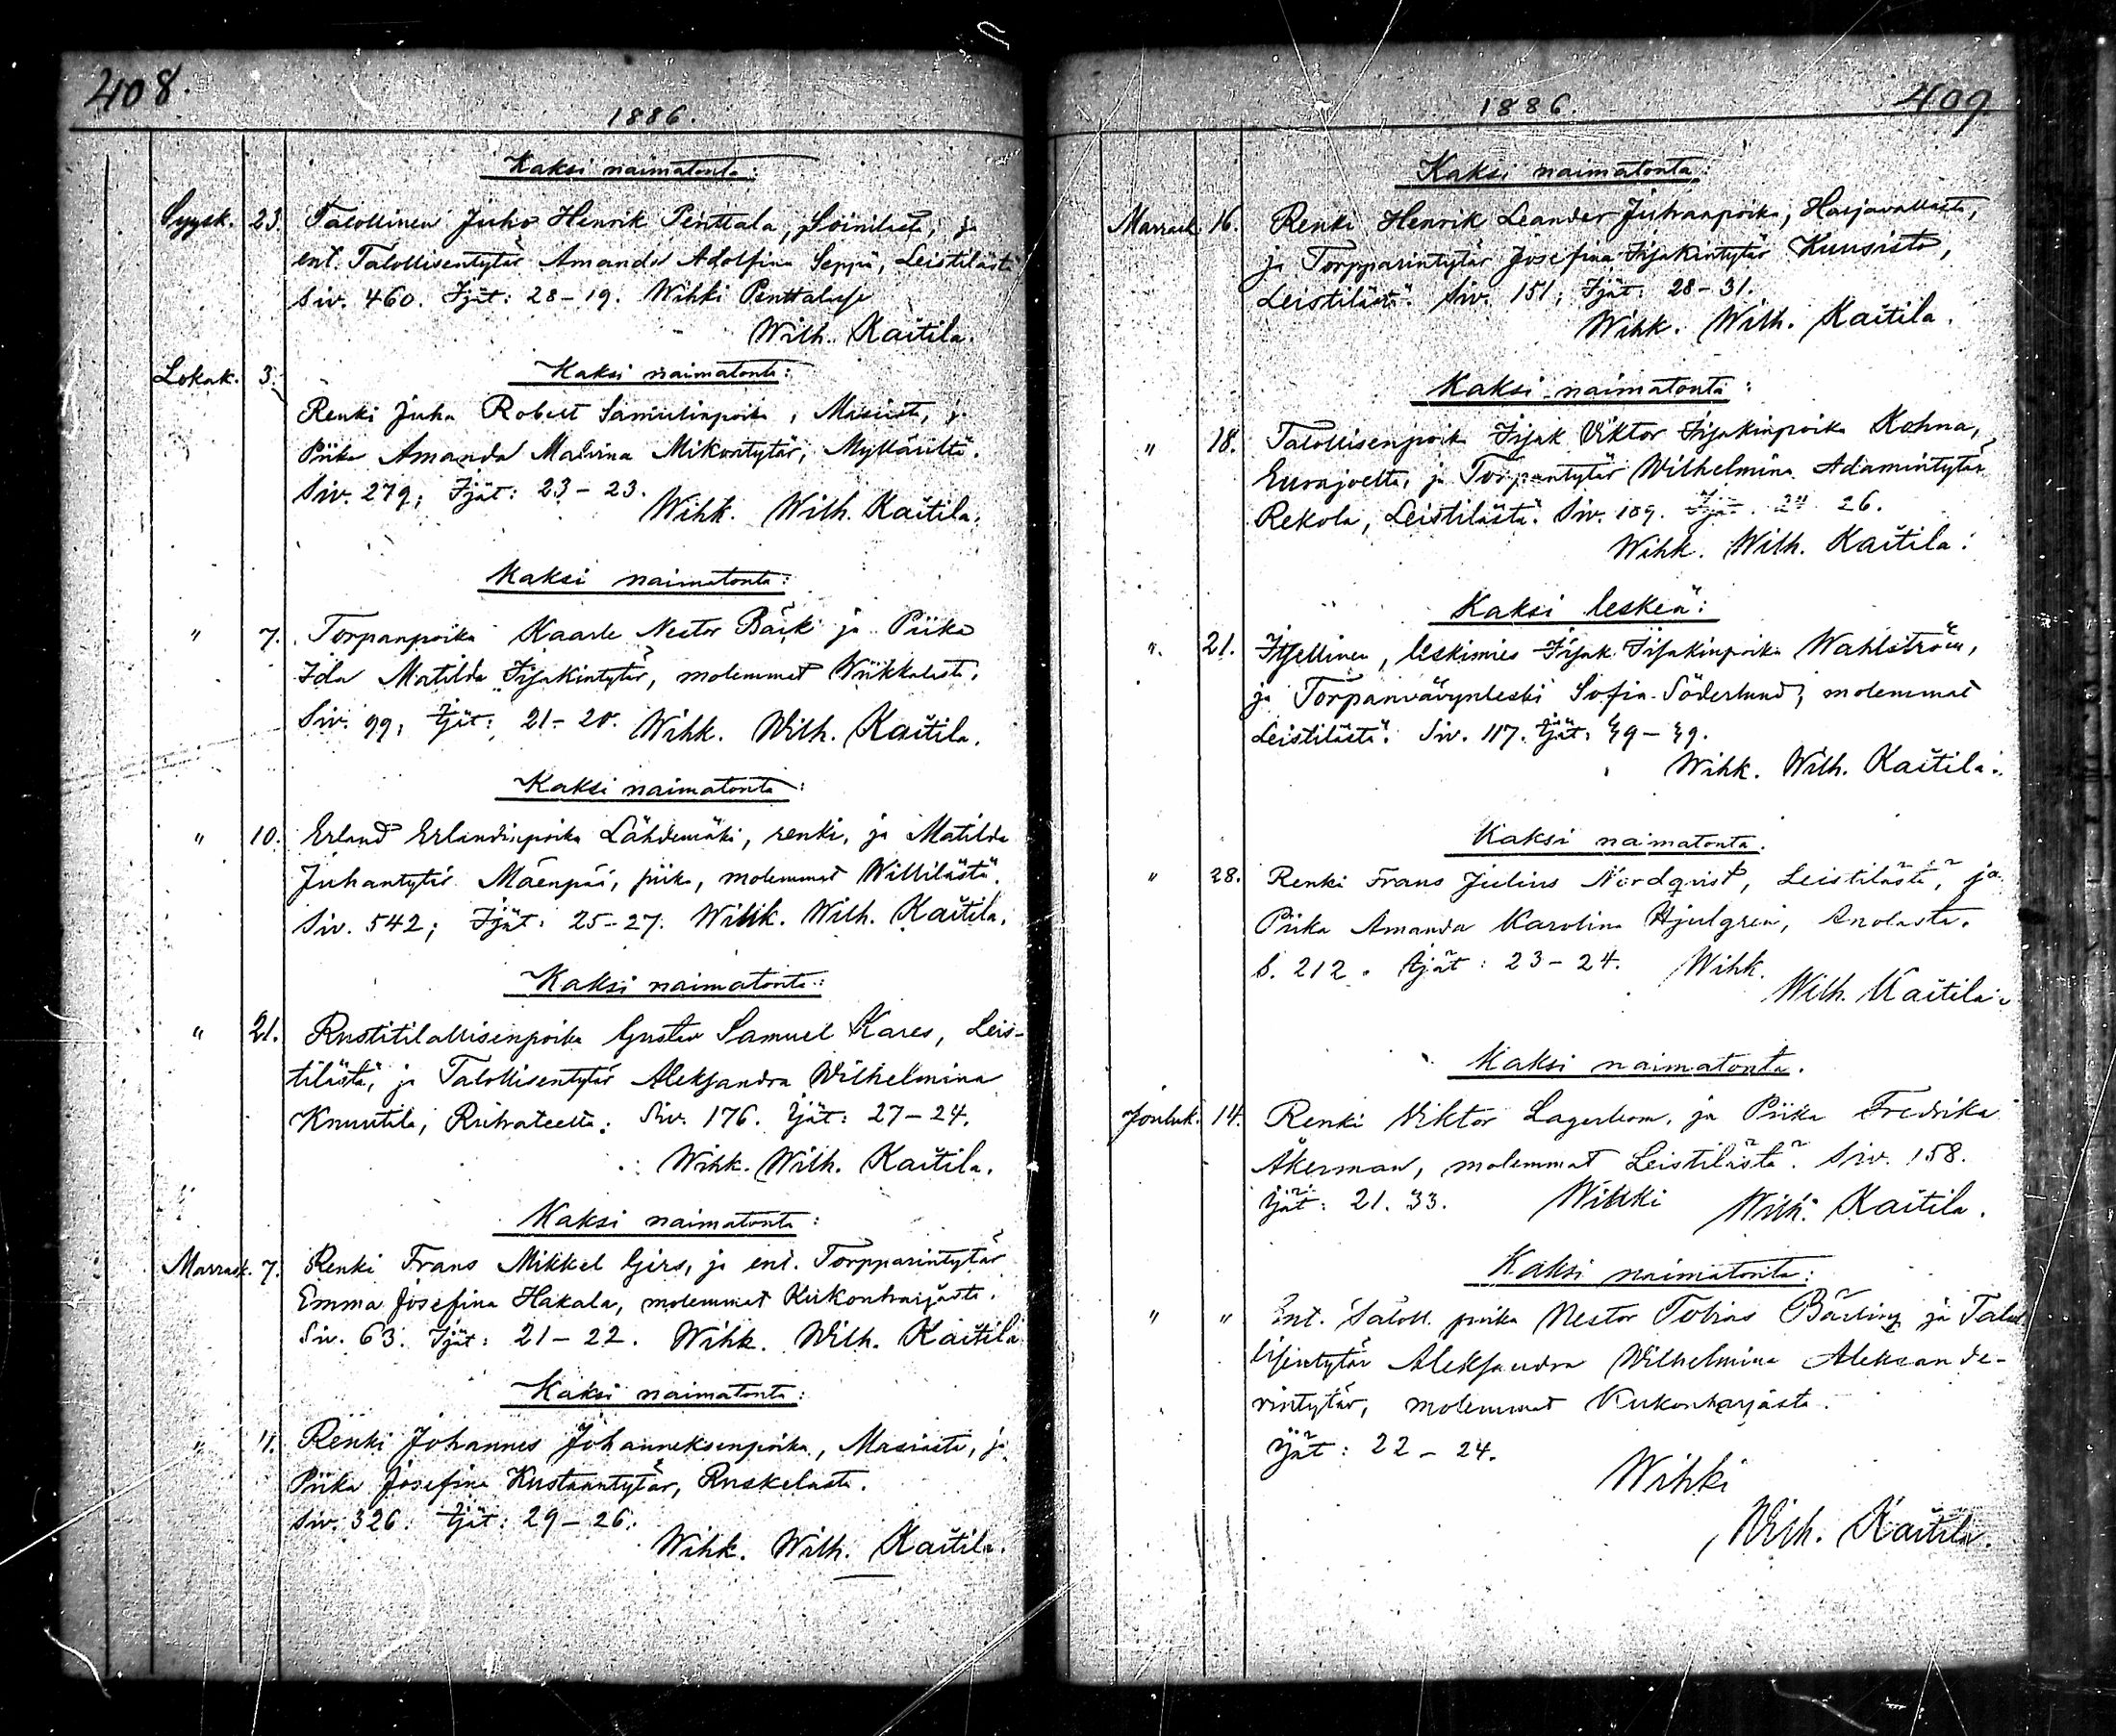 408.
1886.
Kaksi naimatonta:
Syysk. 23. Talollinen Juho Henrik Penttala, Soinilasta, ja
ent. Talollisentytär Amanda Adolfina Seppä, Leistilästä
Siv. 460. Ijät: 28-19. Wihki Penttalassa
Wilh. Kaitila.
Kaksi naimatonta:
Lokak. 3. Renki Juha Robert Samulinpoika, Masiasta, ja
Piika Amanda Malvina Mikontytär, Mylläriltä.
Siv. 279; Ijät: 23-23.
Wihk. Wilh. Kaitila.
Kaksi naimatonta:
" 7. Torpanpoika Kaarle Nestor Bäck ja Piika
Ida Matilda Iisakintytär, molemmat Wiikkalasta.
Siv. 99; Ijät: 21-20. Wihk. Wilh. Kaitila.
Kaksi naimatonta:
" 10. Erland Erlandinpoika Lähdemäki, renki, ja Matilda
Juhantytär Mäenpää, piika, molemmat Willilästä.
Siv. 542; Ijät: 25-27. Wihk. Wilh. Kaitila.
Kaksi naimatonta:
" 21. Rustitilallisenpoika Gustav Samuel Kares, Leis-
tilästä, ja Talollisentytär Aleksandra Wilhelmina
Knuutila, Siv. 176. Ijät: 27-24.
Wihk. Wilh. Kaitila.
Kaksi naimatonta:
Marrask. 7. Renki Frans Mikkel Girs, ja ent. Torpparintytär
Emma Josefina Hakala, molemmat Kukonharjasta.
Siv. 63. Ijät: 21-22. Wihk. Wilh. Kaitila
Kaksi naimatonta:
" 11. Renki Johannes Johanneksenpoika, Masiasta, ja
Piika Josefina Kustaantytär, Ruskelasta.
Siv. 326. Ijät: 29-26.
Wihk. Wilh. Kaitila.
1886. 409
Kaksi naimatonta:
Marrask. 16. Renki Henrik Leander Juhanpoika, Harjavallasta,
ja Torpparintytär Josefina Iisakintytär Kuusisto,
Leistilästä. Siv. 151; Ijät: 28-31.
Wihk. Wilh. Kaitila.
Kaksi naimatonta:
" 18. Talollisenpoika Iisak Viktor Iisakinpoika Kohna,
Eurajoelta, ja Torpantytär Wilhelmina Adamintytär
Rekola, Leistilästä. Siv. 109. Ijät. 26.
Wihk. Wilh. Kaitila.
Kaksi leskeä:
" 21. Itsellinen, leskimies Iisak Iisakinpoika Wahlström,
ja Torpanvävynleski Sofia Söderlund, molemmat
Leistilästä. Siv. 117. Ijät: 49-49.
Wihk. Wilh. Kaitila.
Kaksi naimatonta.
" 28. Renki Frans Julius Nordqvist, Leistilästä, ja
Piika Amanda Karolina Hjulgren, Anolasta.
S. 212. Ijät: 23-24. Wihk.
Wilh. Kaitila.
Kaksi naimatonta.
Jouluk. 14. Renki Viktor Lagerbom, ja Piika Fredrika
Åkerman, molemmat Leistilästä. Siv. 158.
Ijät: 21. 33. Wihki Wilh. Kaitila.
Kaksi naimatonta:
" " Ent. Taloll. poika Nestor Tobias Bärling ja Talol
lisentytär Aleksandra Wilhelmina Aleksande-
rintytär, molemmat Kukonharjasta.
Ijät: 22-24.
Wihki
Wilh. Kaitila.